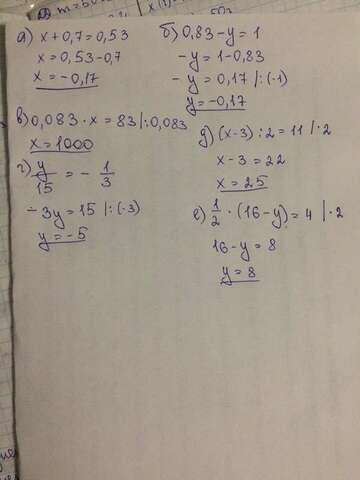 m=50
50г
а) x + 0,7 = 0,53
x = 0,53 - 0,7
x = -0,17
б) 0,83 - y = 1
-y = 1 - 0,83
-y = 0,17 |:(-1)
y = -0,17
в) 0,083 · x = 83 |:0,083
x = 1000
г) y/15 = - 1/3
-3y = 15 |:(-3)
y = -5
д) (x-3) : 2 = 11 |·2
x - 3 = 22
x = 25
е) 1/2 · (16-y) = 4 |·2
16 - y = 8
y = 8